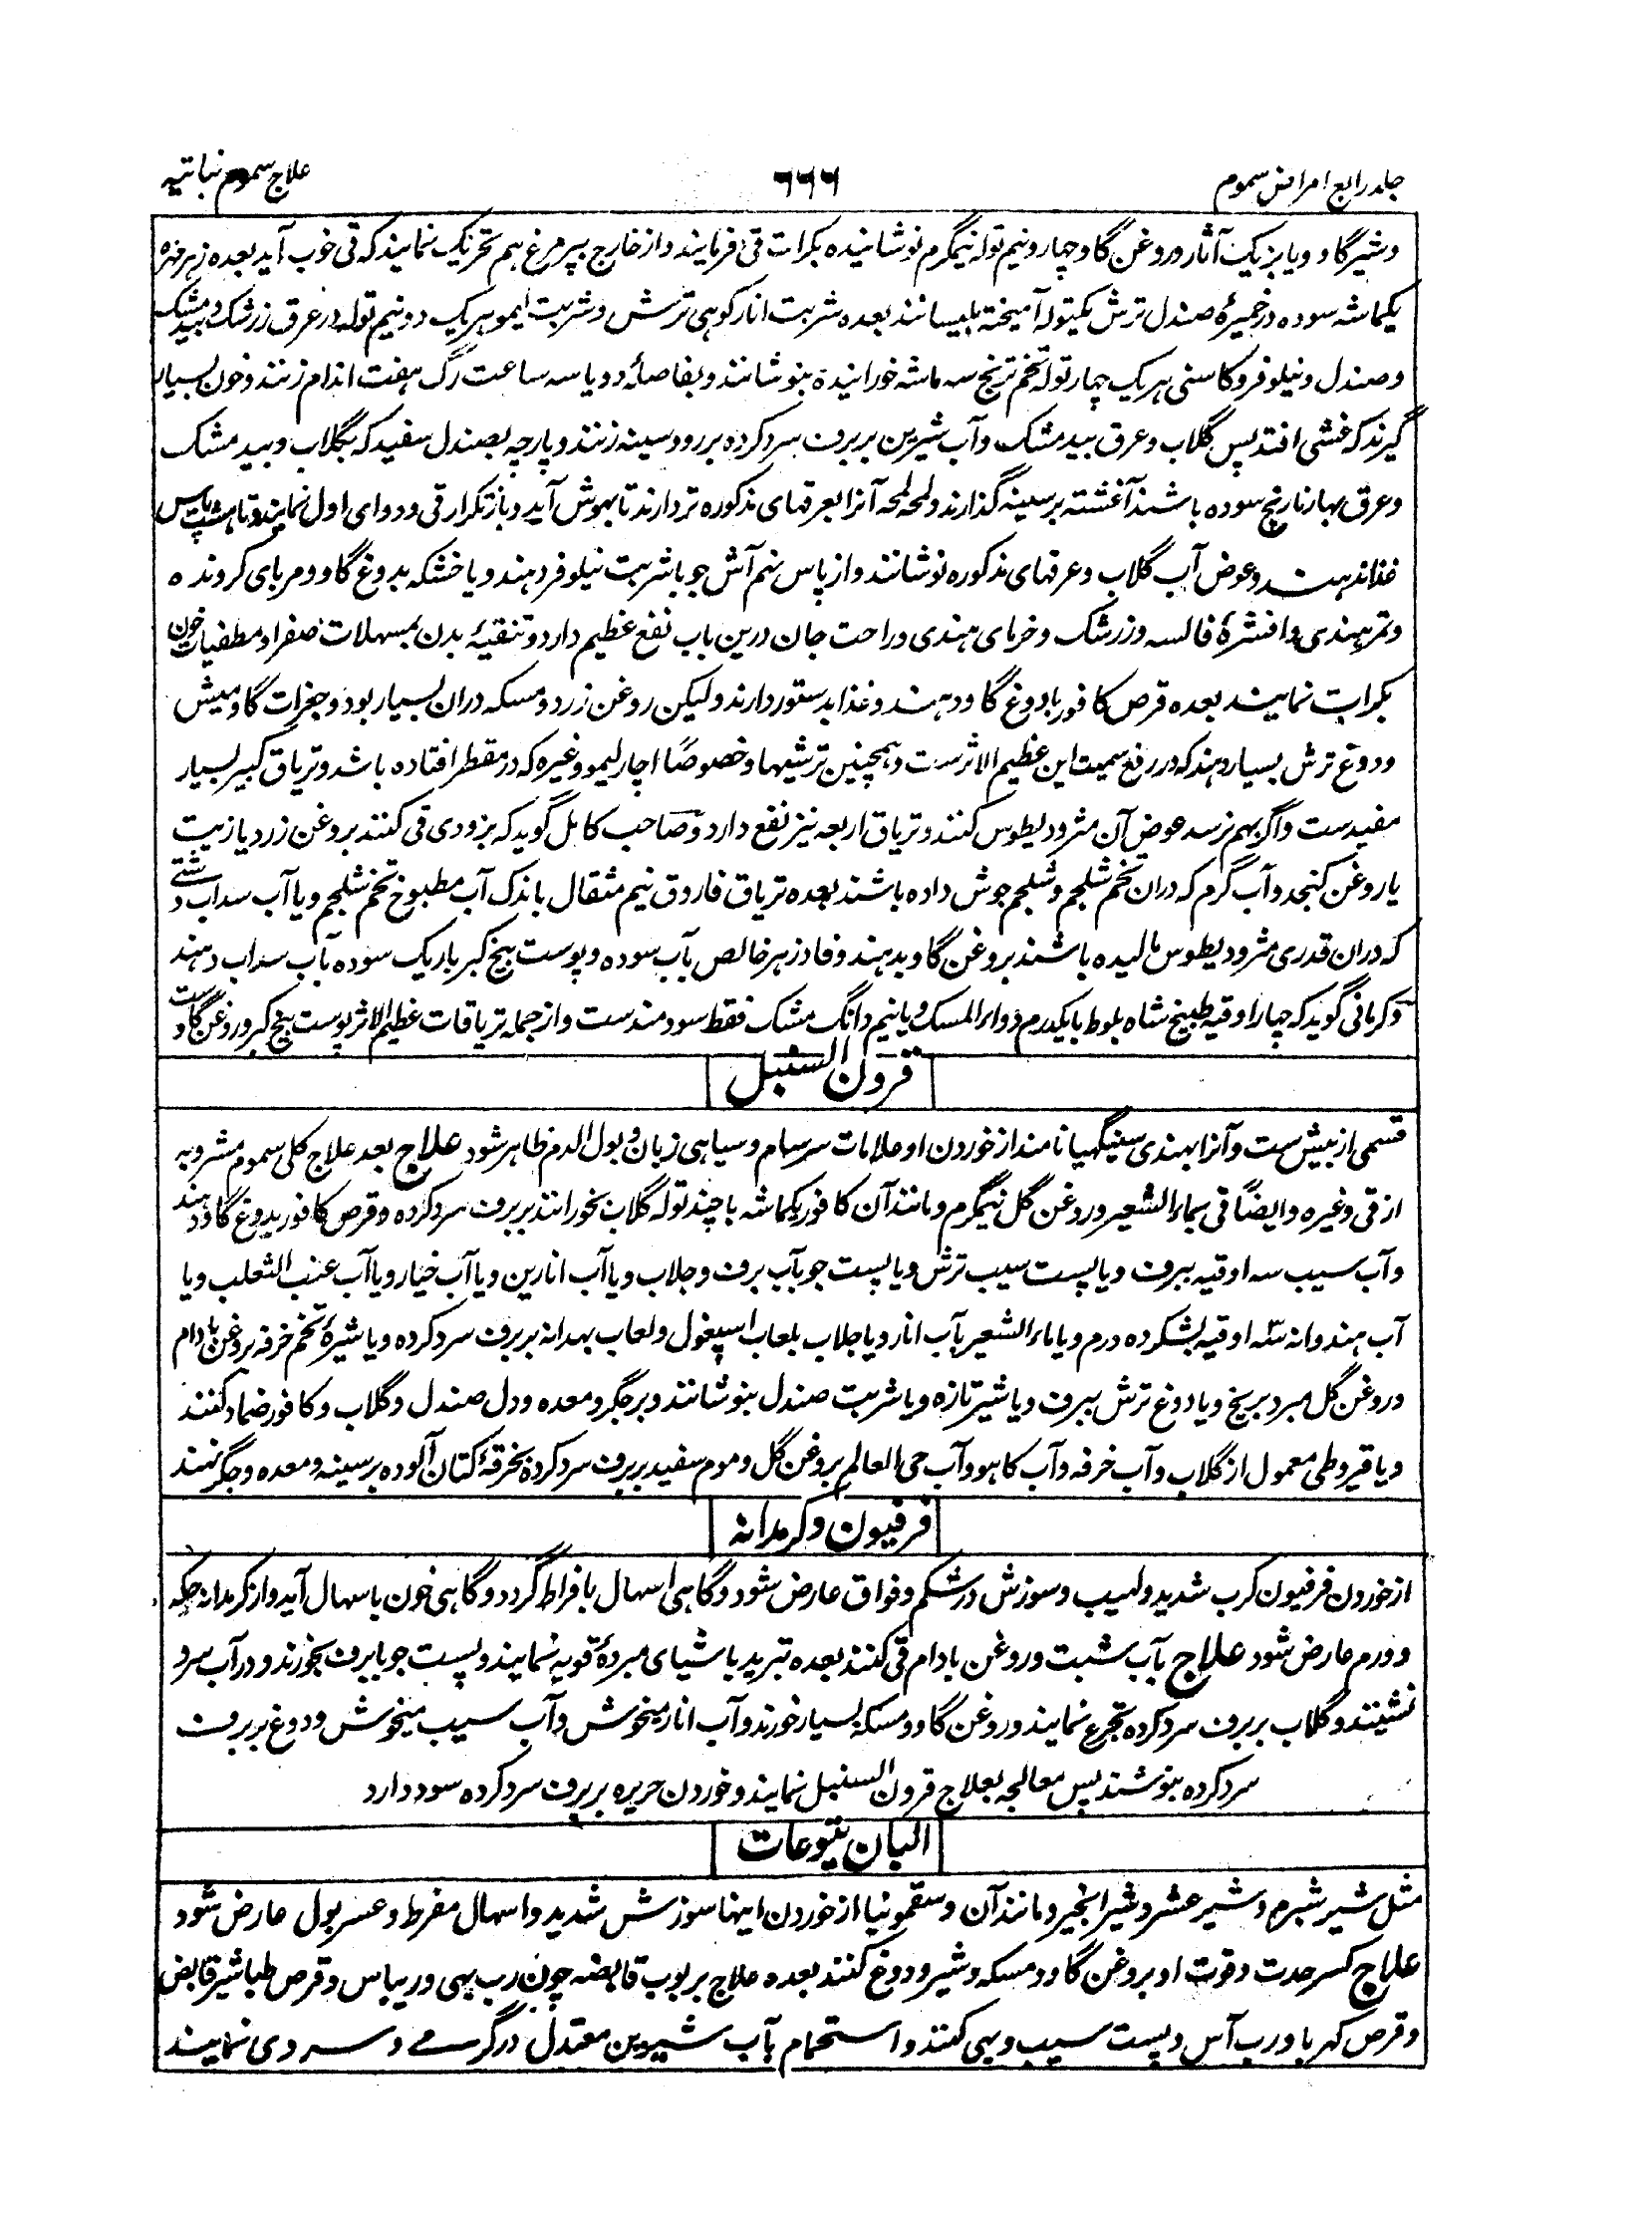 جلد رابع امراض سموم
٦٦٦
علاج سموم نباتیه
وشیر گاو ویا بزیک آثار وروغن گاو چهار ونیم توله نیمگرم نوشانیده بکرات قی فرمایند واز خارج بپر مرغ هم تحریک نمایند که قی خوب آید بعده زهر مهره
یکماشه سوده در خمیرهٔ صندل ترش یکتوله آمیخته بلیسانند بعده شربت انار کوهی ترش وشربت لیمو هریک دو نیم توله در عرق زرشک وبید مشک
وصندل ونیلوفر وکاسنی هریک چهار توله تخم ترنج سه ماشه خورانیده بنوشانند وبفاصلهٔ دو یا سه ساعت رگ هفت اندام زنند وخون بسیار
گیرند که غشی افتد پس گلاب وعرق بید مشک وآب شیرین ببرف سرد کرده بر رو وسینه زنند وپارچه بصندل سفید که بگلاب وبید مشک
وعرق بهار نارنج سوده باشند آغشته بر سینه گذارند ولمحه لمحه آنرا بعرقهای مذکوره تر دارند تا بهوش آید وباز تکرار قی ودوای اول نمایند وتا هشت پاس
غذا ندهند وعوض آب گلاب وعرقهای مذکوره نوشانند واز پاس نهم آش جو با شربت نیلوفر دهند ویا خشکه بدوغ گاو ومربای کروندہ
وتمر هندی وافشرهٔ فالسه وزرشک وخرمای هندی وراحت جان درین باب نفع عظیم دارد وتنقیهٔ بدن بمسهلات صفرا ومطفیات خون
بکرات نمایند بعده قرص کافور با دوغ گاو دهند وغذا بدستور دارند ولیکن روغن زرد ومسکه دران بسیار بود وجغرات گاومیش
ودوغ ترش بسیار دهند که در رفع سمیت این عظیم الاثرست وهمچنین ترشیها وخصوصًا اچار لیمو وغیره که در مقطر افتاده باشد وتریاق کبیر بسیار
مفیدست واگر بهم نرسد عوض آن مثرودیطوس کنند وتریاق اربعه نیز نفع دارد وصاحب کامل گوید که بزودی قی کنند بروغن زرد یا زیت
یا روغن کنجد وآب گرم که دران تخم شلجم وشلجم جوش داده باشند بعده تریاق فاروق نیم مثقال باندک آب مطبوخ تخم شلجم ویا آب سداب دشتی
که دران قدری مثرودیطوس مالیده باشند بروغن گاو بدهند وفادزهر خالص بآب سوده وپوست بیخ کبر باریک سوده بآب سداب دهند
وکرمانی گوید که چهار اوقیه طبیخ شاه بلوط با یکدرم دواء المسک ویا نیم دانگ مشک فقط سودمندست واز جمله تریاقات عظیم الاثر پوست بیخ کبر وروغن گاوست
قرون السنبل
قسمی از بیش ست وآنرا بهندی سینگهیا نامند از خوردن او علامات سرسام وسیاهی زبان وبول الدم ظاهر شود علاج بعد علاج کلی سموم مشروبه
از قی وغیره وایضًا قی بماء الشعیر وروغن گل نیمگرم ومانند آن کافور یکماشه با چند توله گلاب بخورانند ببرف سرد کرده وقرص کافور بدوغ گاو دهند
وآب سیب سه اوقیه ببرف ویا پست سیب ترش ویا پست جو بآب برف وجلاب ویا آب انارین ویا آب خیار ویا آب عنب الثعلب ویا
آب هندوانه سه اوقیه بشکر ده درم ویا ماء الشعیر بآب انار ویا جلاب بلعاب اسپغول ولعاب بهدانه ببرف سرد کرده ویا شیرهٔ تخم خرفه بروغن بادام
وروغن گل مبرد بریخ ویا دوغ ترش ببرف ویا شیر تازه ویا شربت صندل بنوشانند وبر جگر ومعده ودل صندل وگلاب وکافور ضماد کنند
ویا قیروطی معمول از گلاب وآب خرفه وآب کاهو وآب حی العالم بروغن گل وموم سفید ببرف سرد کرده بخرقهٔ کتان آلوده بر سینه ومعده وجگر نهند
فرفیون وکرمدانه
از خوردن فرفیون کرب شدید ولهیب وسوزش در شکم وفواق عارض شود وگاهی اسهال بافراط گردد وگاهی خون باسهال آید واز کرمدانه حکه
وورم عارض شود علاج بآب شبت وروغن بادام قی کنند بعده تبرید باشیای مبردهٔ قویه نمایند وپست جو با برف بخورند ودر آب سرد
نشینند وگلاب ببرف سرد کرده تجرع نمایند وروغن گاو ومسکه بسیار خورند وآب انار میخوش وآب سیب میخوش ودوغ ببرف
سرد کرده بنوشند پس معالجه بعلاج قرون السنبل نمایند وخوردن حریره ببرف سرد کرده سود دارد
البان یتوعات
مثل شیر شبرم وشیر عشر وشیر انجیر ومانند آن وسقمونیا از خوردن اینها سوزش شدید واسهال مفرط وعسر بول عارض شود
علاج کسر حدت وقوت او بروغن گاو ومسکه وشیر ودوغ کنند بعده علاج بربوب قابضه چون رب بهی وریباس وقرص طباشیر قابض
وقرص کهربا ورب آس وپست سیب وبهی کنند واستحمام بآب شیرین معتدل در گرمی وسردی نمایند